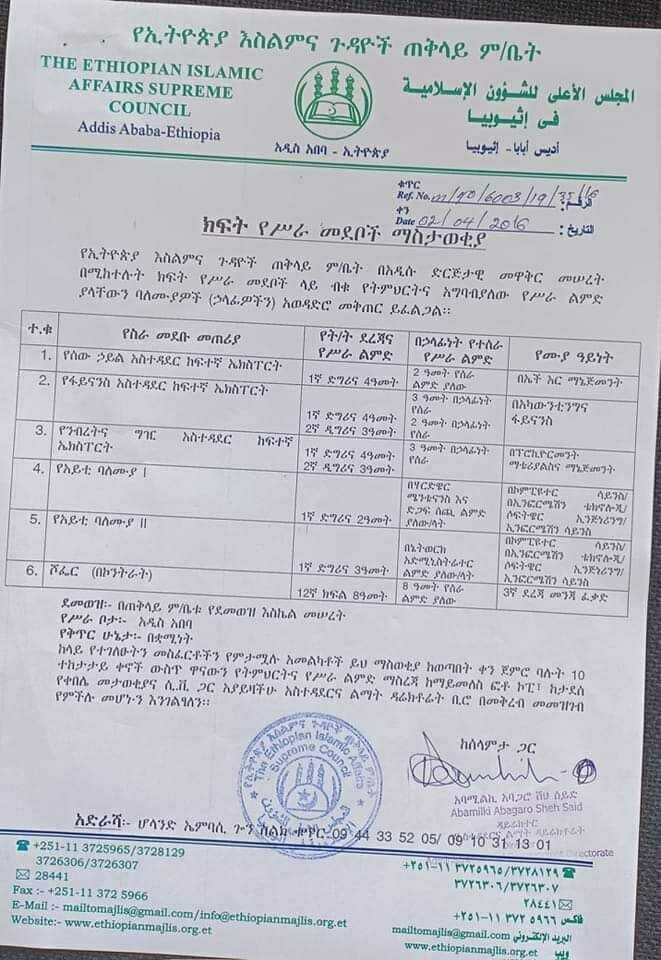 የኢትዮጵያ እስልምና ጉዳዮች ጠቅላይ ም/ቤት
THE ETHIOPIAN ISLAMIC
AFFAIRS SUPREME
COUNCIL
Addis Ababa-Ethiopia
አዲስ አበባ - ኢትዮጵያ
المجلس الأعلى للشؤون الإسلامية
فى إثيوبيا
أديس أبابا- إثيوبيا
ቁጥር
Ref. No. الرقم:
ቀን
Date 02/04/2016 التاريخ :
ክፍት የሥራ መደቦች ማስታወቂያ
የኢትዮጵያ እስልምና ጉዳዮች ጠቅላይ ም/ቤት በአዲሱ ድርጅታዊ መዋቅር መሠረት
በሚከተሉት ክፍት የሥራ መደቦች ላይ ብቁ የትምህርትና አግባብያለው የሥራ ልምድ
ያላቸውን ባለሙያዎች (ኃላፊዎችን) አወዳድሮ መቅጠር ይፈልጋል።
ተ.ቁ የስራ መደቡ መጠሪያ የት/ት ደረጃና የሥራ ልምድ በኃላፊነት የተሰራ የሥራ ልምድ የሙያ ዓይነት
1. የሰው ኃይል አስተዳደር ከፍተኛ ኤክስፐርት 1ኛ ድግሪና 4ዓመት 2 ዓመት የሰራ ልምድ ያለው በኤች አር ማኔጅመንት
2. የፋይናንስ አስተዳደር ከፍተኛ ኤክስፐርት 1ኛ ድግሪና 4ዓመት 2ኛ ዲግሪና 3ዓመት 3 ዓመት በኃላፊነት የሰራ 2 ዓመት በኃላፊነት የሰራ በአካውንቲንግና ፋይናንስ
3. የንብረትና ግዢ አስተዳደር ከፍተኛ ኤክስፐርት 1ኛ ድግሪና 4ዓመት 2ኛ ዲግሪና 3ዓመት 3 ዓመት በኃላፊነት የሰራ በፕሮኪዩርመንት ማቴሪያልስና ማኔጅመንት
4. የአይቲ ባለሙያ I 1ኛ ድግሪና 2ዓመት በሃርድዌር ሜንቴናንስ እና ድጋፍ ሰጪ ልምድ ያለው/ላት በኮምፒዩተር ሳይንስ/ በኢንፎርሜሽን ቴክኖሎጂ/ ሶፍትዌር ኢንጅነሪንግ/ ኢንፎርሜሽን ሳይንስ
5. የአይቲ ባለሙያ II 1ኛ ድግሪና 3ዓመት በኔትወርክ አድሚኒስትሬተር ልምድ ያለው/ላት በኮምፒዩተር ሳይንስ/ በኢንፎርሜሽን ቴክኖሎጂ/ ሶፍትዌር ኢንጅነሪንግ/ ኢንፎርሜሽን ሳይንስ
6. ሾፌር (በኮንትራት) 12ኛ ክፍል 8ዓመት 8 ዓመት የሰራ ልምድ ያለው 3ኛ ደረጃ መንጃ ፈቃድ
ደመወዝ፡- በጠቅላይ ም/ቤቱ የደመወዝ እስኬል መሠረት
የሥራ ቦታ፡- አዲስ አበባ
የቅጥር ሁኔታ፡- በቋሚነት
ከላይ የተገለፀውን መስፈርቶችን የምታሟሉ አመልካቶች ይህ ማስታወቂያ ከወጣበት ቀን ጀምሮ ባሉት 10
ተከታታይ ቀኖች ውስጥ ዋናውን የትምህርትና የሥራ ልምድ ማስረጃ ከማይመለስ ፎቶ ኮፒ፣ ከታደሰ
የቀበሌ መታወቂያና ሲ.ቪ ጋር አያይዛችሁ አስተዳደርና ልማት ዳሬክቶሬት ቢሮ በመቅረብ መመዝገብ
የምችሉ መሆኑን እንገልፃለን።
ከሰላምታ ጋር
የኢትዮጵያ እስልምና ጉዳዮች ጠቅላይ ም/ቤት
The Ethiopian Islamic Affairs
Supreme Council
አባሚልኪ አባጋሮ ሸህ ሰይድ
Abamilki Abagaro Sheh Said
ዳይሬክተር
Directorate
አድራሻ፡- ሆላንድ ኤምባሲ ጎን ስልክ ቁጥር-09 44 33 52 05/ 09 10 31 13 01
☎ +251-11 3725965/3728129
3726306/3726307
✉ 28441
Fax :- +251-11 372 5966
E-Mail :- mailtomajlis@gmail.com/info@ethiopianmajlis.org.et
Website:- www.ethiopianmajlis.org.et
+፪፶፩-፲፩ ፫፯፪፭፱፮፭/፫፯፪፰፩፪፱ ☎
፫፯፪፮፫፻፮/፫፯፪፮፫፻፯
፳፰፬፬፩ ✉
+፪፶፩-፲፩ ፫፯፪ ፭፱፮፮ فاكس
mailtomajlis@gmail.com البريد الإلكتروني
www.ethiopianmajlis.org.et ويب